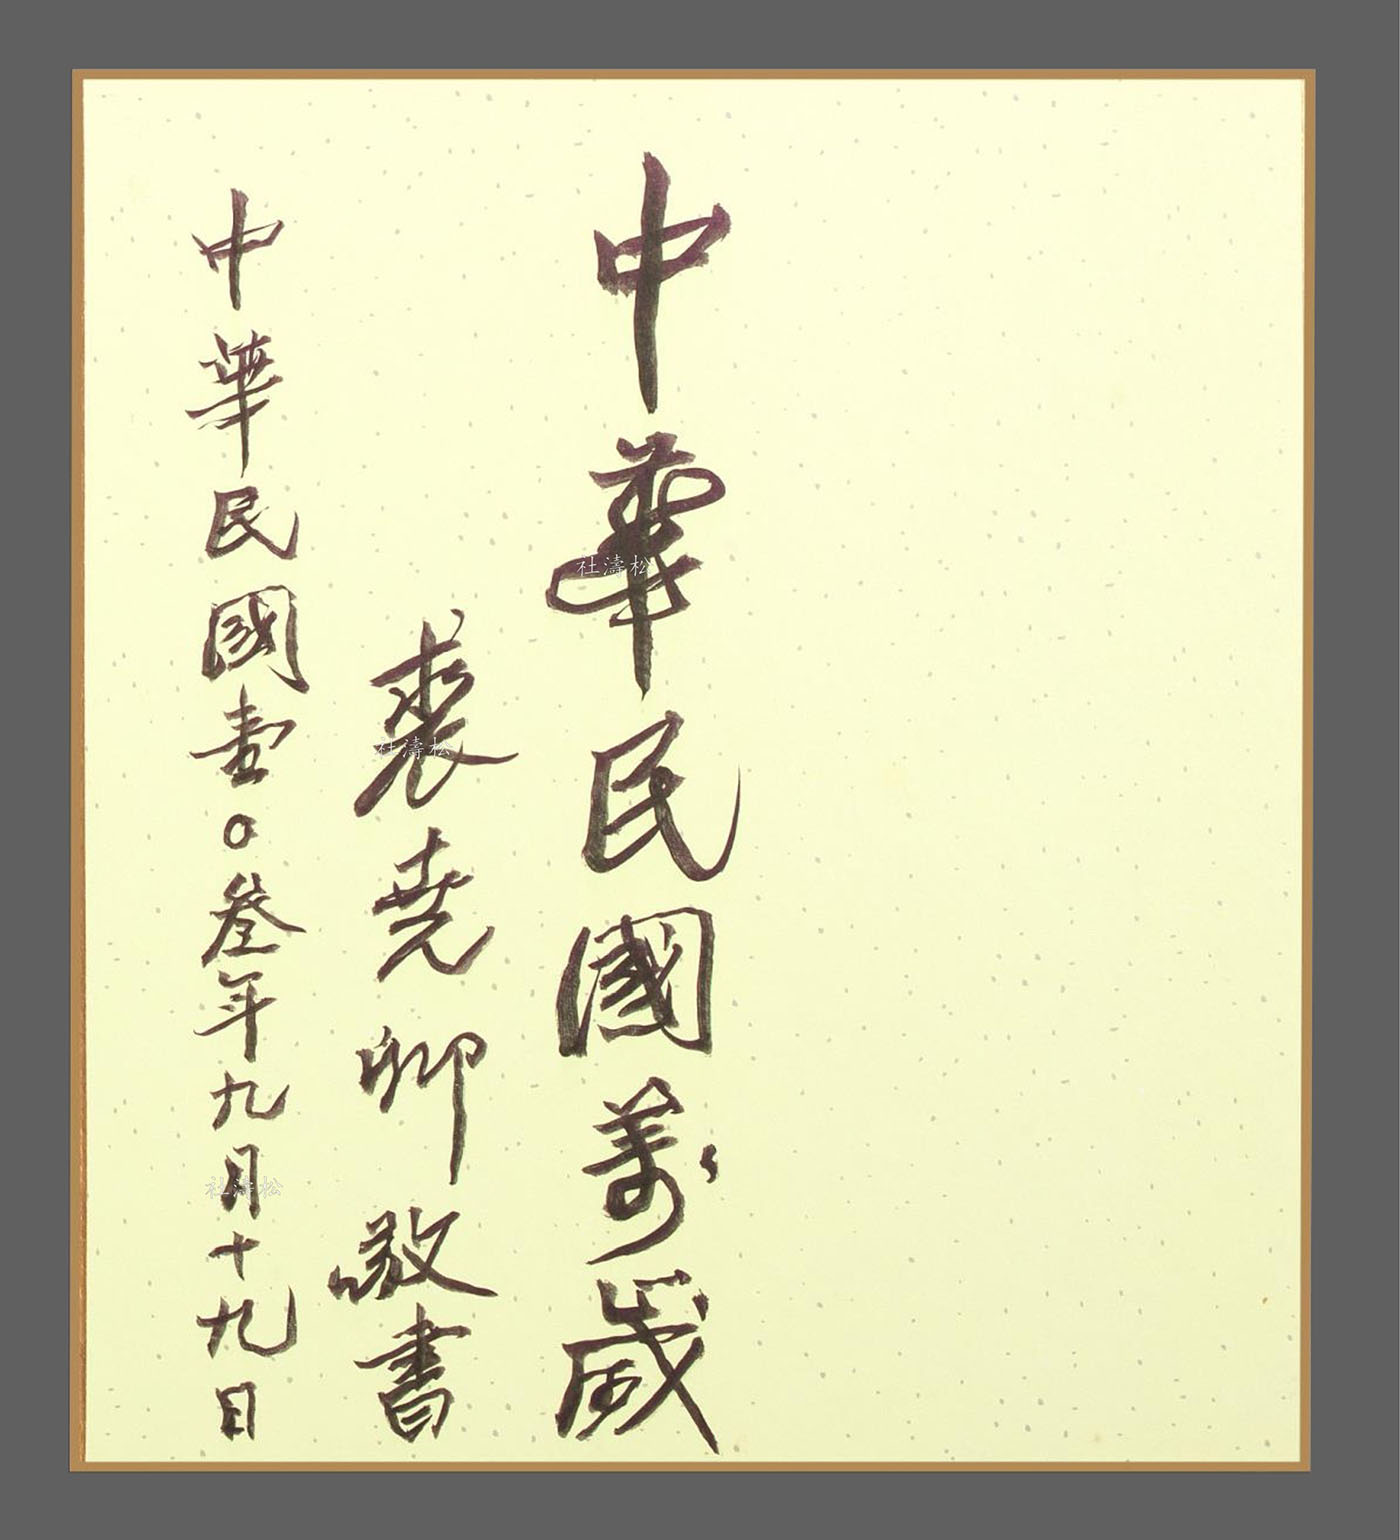 中華民國萬歲
裘堯卿敬書
中華民國壹〇叁年九月十九日
杜濤松
杜濤松
杜濤松